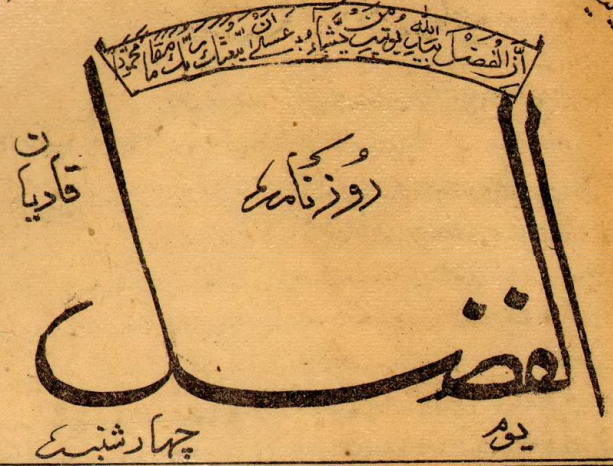 اِنَّ الْفَضْلَ بِیَدِ اللہِ یُؤْتِیْہِ مَنْ یَّشَآءُ عَسٰۤی اَنْ یَّبْعَثَکَ رَبُّکَ مَقَامًا مَّحْمُوْدًا
روزنامہ
قادیان
الفضل
یوم چہار شنبہ